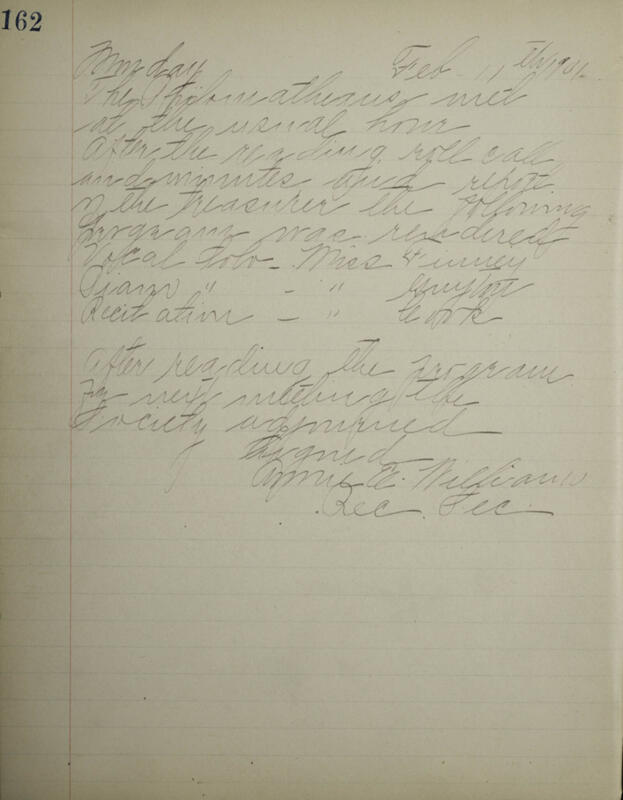 162
Monday Feb. 11th 1901.
The Philomatheans met
at the usual hour
After the reading, roll call,
and minutes and report
of the treasurer the following
program was rendered
Vocal Solo - Miss Finney
Piano " - "
Recitation - " Cook
After reading the program
for next meeting the
Society adjourned
Signed
Annie E. Williams
Rec. Sec.